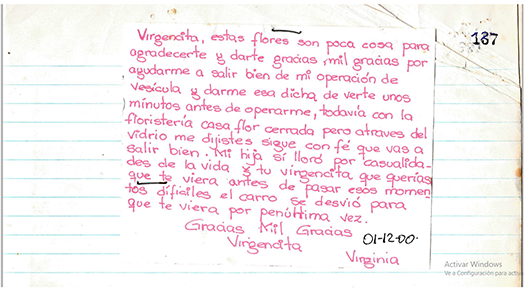 187
Virgencita, estas flores son poca cosa para
agradecerte y darte gracias, mil gracias por
ayudarme a salir bien de mi operación de
vesícula y darme esa dicha de verte unos
minutos antes de operarme, todavía con la
floristería casa flor cerrada pero atraves del
vidrio me dijistes sigue con fé que vas a
salir bien. Mi hija sí lloró por casualida-
des de la vida y tu virgencita que querías
que te viera antes de pasar esos momen-
tos dificiles el carro se desvió para
que te viera por penúltima vez.
Gracias Mil Gracias
Virgencita
01-12-00.
Virginia
Activar Windows
Ve a Configuración para activ